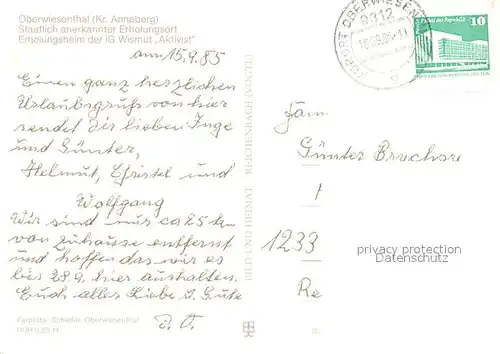 Oberwiesenthal (Kr. Annaberg)
Staatlich anerkannter Erholungsort
Erholungsheim der IG Wismut „Aktivist"
am 15.9.85
Einen ganz herzlichen
Urlaubsgruß von hier
sendet dir lieben Inge
und Günter,
Helmut, Christel und
Wolfgang
Wir sind nur ca 25 km
von zuhause entfernt
und hoffen das wir es
bis 28.9. hier aushalten.
Euch alles Liebe u. Gute
BILD UND HEIMAT REICHENBACH (VOGTL)
KURORT OBERWIESEN
9312
Palast der Republik
10
Fam.
Günter
1233
Re
privacy protection
Datenschutz
Farbfoto: Schiefer, Oberwiesenthal